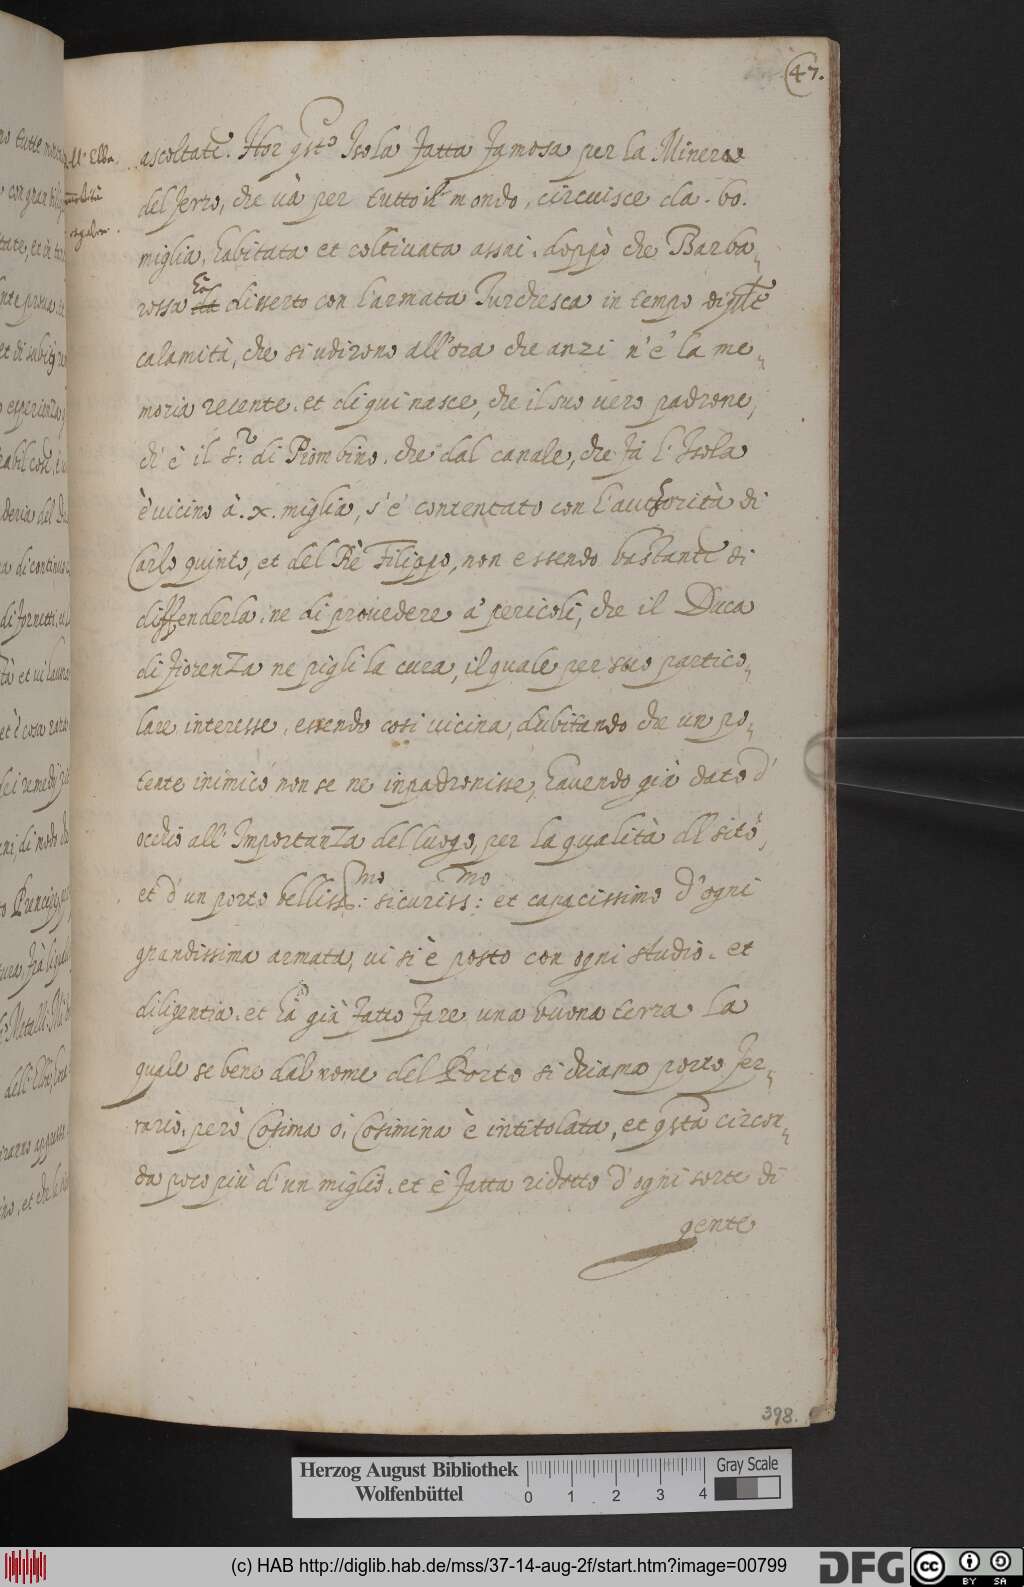 47.
ascoltate. Hor qsto Isola fatta famosa per la Minera
del ferro, che và per tutto il mondo, circuisce da. 60.
miglia, habitata et coltivata assai. doppò che Barba„
rossa la disserto con l'armata Turchesca in tempo di qlle
calamità, che si udirono all'ora che anzi n'è la me„
moria recente. et di qui nasce, che il suo vero padrone,
ch'è il S.r di Piombino. che dal canale, che fà l'Isola
è vicino à. x. miglia, s'è contentato con l'authorità di
Carlo quinto, et del Rè Filippo, non essendo bastante di
diffenderla. ne di provedere a' pericoli, che il Duca
di fiorenza ne pigli la cura, il quale per suo partico„
lare interesse, essendo cosi vicina, dubitando che un po„
tente inimico non se ne inpadronisse, havendo già dato d'
occhio all'Importanza del luogo, per la qualità dll sito,
et d'un porto belliss:mo sicuriss:mo et capacissimo d'ogni
grandissima armata, vi si è posto con ogni studio. et
diligentia. et hà già fatto fare una buona terra la
quale se bene dal nome del Porto si chiama porto fer„
rario, però Cosima ò, Cosimina è intitolata, et qsta circon„
da poco più d'un miglio. et è fatta ridotto d'ogni sorte di
gente
Elba
398.
Herzog August Bibliothek
Wolfenbüttel
0 1 2 3 4
Gray Scale
(c) HAB http://diglib.hab.de/mss/37-14-aug-2f/start.htm?image=00799
DFG
cc BY SA